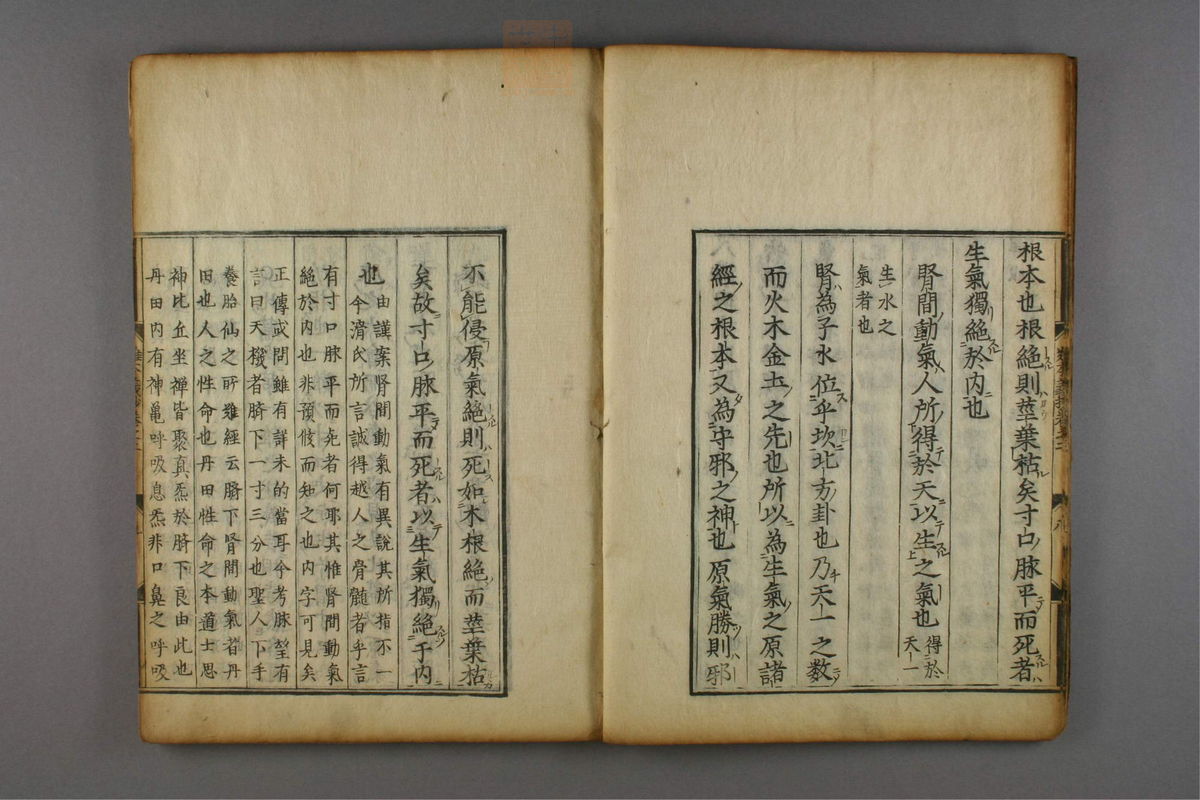 根本也根絶則莖葉枯矣寸口脉平而死者
生氣獨絶於内也
腎間動氣人所得於天以生之氣也得於天一
生水之
氣者也
腎為子水位乎坎北方卦也乃天一之数
而火木金土之先也所以為生氣之原諸
經之根本又為守邪之神也原氣勝則邪
不能侵原氣絶則死如木根絶而莖葉枯
矣故寸口脉平而死者以生氣獨絶于内
也
由謹案腎間動氣有異說其所指不一
今滑氏所言誠得越人之骨髓者乎言
有寸口脉平而死者何耶其惟腎間動氣
絶於内也非預候而知之也内字可見矣
正傳或問雖有詳未的當耳今考脉髱有
言曰天機者臍下一寸三分也聖人下手
養胎仙之所難經云臍下腎間動氣者丹
田也人之性命也丹田性命之本道士思
神比丘坐禪皆聚真炁於臍下良由此也
丹田内有神龜呼吸息炁非口鼻之呼吸